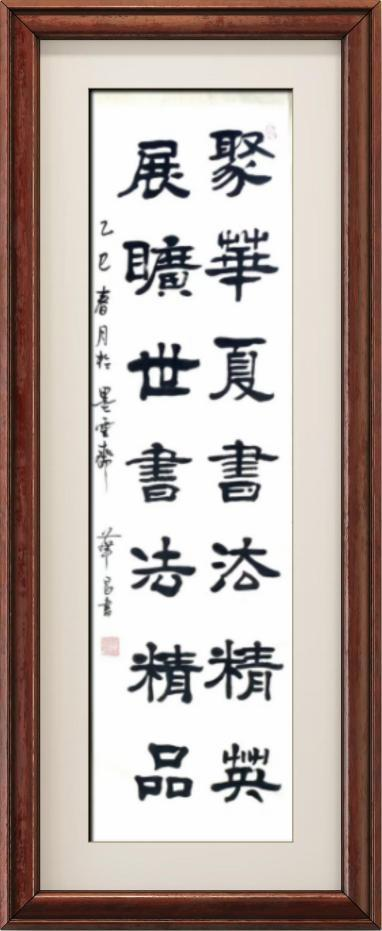 聚華夏書法精英
展曠世書法精品
乙巳春月於墨雲齋 華昌書